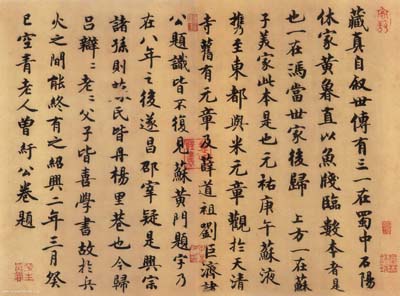 藏真自敘世傳有三一在蜀中石陽
休家黃魯直以魚牋臨數本者是
也一在馮當世家後歸 上方一在蘇
子美家此本是也元祐庚午蘇液
携至東都與米元章觀於天清
寺舊有元章及薛道祖劉巨濟諸
公題識皆不復見蘇黃門題字乃
在八年之後遂昌邵宰疑是興宗
諸孫則氏皆丹楊里巷也今歸
呂辯〻老〻父子皆喜學書故於兵
火之間能終有之紹興二年三月癸
巳空青老人曾紆公卷題